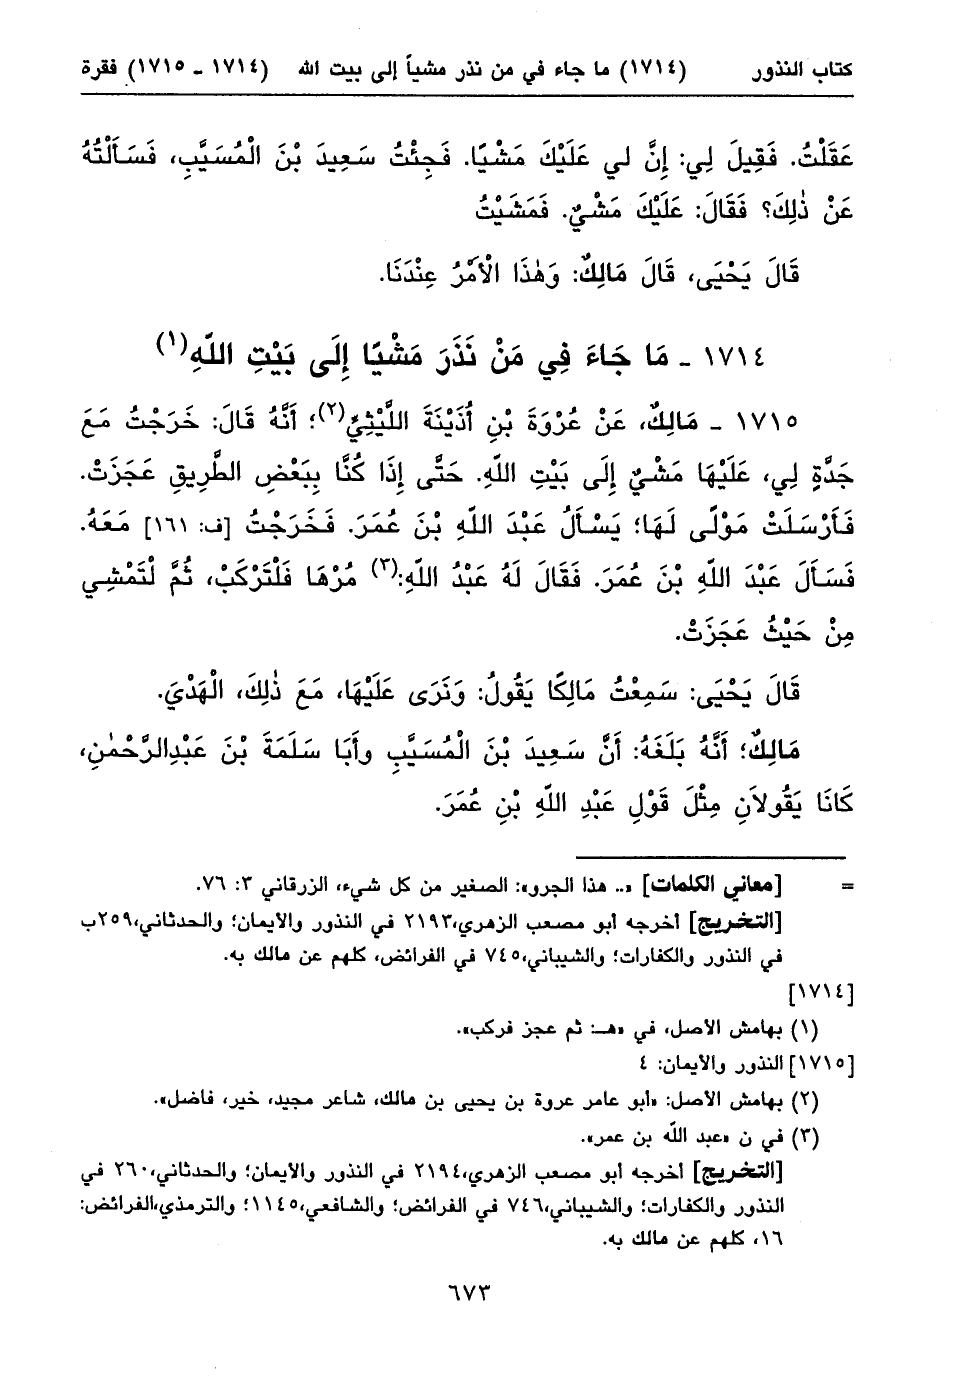 كتاب النذور (١٧١٤) ما جاء في من نذر مشياً إلى بيت الله (١٧١٤ - ١٧١٥) فقرة
عَقَلْتُ. فَقِيلَ لِي: إِنَّ لي عَلَيْكَ مَشْيًا. فَجِئْتُ سَعِيدَ بْنَ الْمُسَيَّبِ، فَسَأَلْتُهُ
عَنْ ذٰلِكَ؟ فَقَالَ: عَلَيْكَ مَشْيٌ. فَمَشَيْتُ
قَالَ يَحْيَى، قَالَ مَالِكٌ: وَهٰذَا الْأَمْرُ عِنْدَنَا.
١٧١٤ - مَا جَاءَ فِي مَنْ نَذَرَ مَشْيًا إِلَى بَيْتِ اللَّهِ(١)
١٧١٥ - مَالِكٌ، عَنْ عُرْوَةَ بْنِ أُذَيْنَةَ اللَّيْثِيِّ(٢)؛ أَنَّهُ قَالَ: خَرَجْتُ مَعَ
جَدَّةٍ لِي، عَلَيْهَا مَشْيٌ إِلَى بَيْتِ اللَّهِ. حَتَّى إِذَا كُنَّا بِبَعْضِ الطَّرِيقِ عَجَزَتْ.
فَأَرْسَلَتْ مَوْلًى لَهَا؛ يَسْأَلُ عَبْدَ اللَّهِ بْنَ عُمَرَ. فَخَرَجْتُ [ف: ١٦١] مَعَهُ.
فَسَأَلَ عَبْدَ اللَّهِ بْنَ عُمَرَ. فَقَالَ لَهُ عَبْدُ اللَّهِ:(٣) مُرْهَا فَلْتَرْكَبْ، ثُمَّ لْتَمْشِي
مِنْ حَيْثُ عَجَزَتْ.
قَالَ يَحْيَى: سَمِعْتُ مَالِكًا يَقُولُ: وَنَرَى عَلَيْهَا، مَعَ ذٰلِكَ، الْهَدْيَ.
مَالِكٌ؛ أَنَّهُ بَلَغَهُ: أَنَّ سَعِيدَ بْنَ الْمُسَيَّبِ وأَبَا سَلَمَةَ بْنَ عَبْدِالرَّحْمٰنِ،
كَانَا يَقُولاَنِ مِثْلَ قَوْلِ عَبْدِ اللَّهِ بْنِ عُمَرَ.
= [معاني الكلمات] «.. هذا الجرو»: الصغير من كل شيء، الزرقاني ٣: ٧٦.
[التخريج] أخرجه أبو مصعب الزهري،٢١٩٣ في النذور والأيمان؛ والحدثاني،٢٥٩ب
في النذور والكفارات؛ والشيباني،٧٤٥ في الفرائض، كلهم عن مالك به.
[١٧١٤]
(١) بهامش الأصل، في «هـ: ثم عجز فركب».
[١٧١٥] النذور والأيمان: ٤
(٢) بهامش الأصل: «أبو عامر عروة بن يحيى بن مالك، شاعر مجيد، خير، فاضل».
(٣) في ن «عبد اللَّه بن عمر».
[التخريج] أخرجه أبو مصعب الزهري،٢١٩٤ في النذور والأيمان؛ والحدثاني،٢٦٠ في
النذور والكفارات؛ والشيباني،٧٤٦ في الفرائض؛ والشافعي،١١٤٥؛ والترمذي،الفرائض:
١٦، كلهم عن مالك به.
٦٧٣